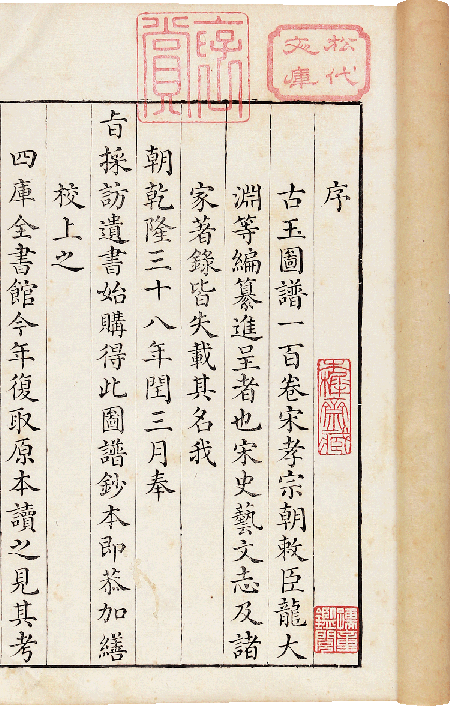 序
古玉圖譜一百卷宋孝宗朝敕臣龍大
淵等編纂進呈者也宋史藝文志及諸
家著錄皆失載其名我
朝乾隆三十八年閏三月奉
旨採訪遺書始購得此圖譜鈔本即恭加繕
校上之
四庫全書館今年復取原本讀之見其考
松代
文庫